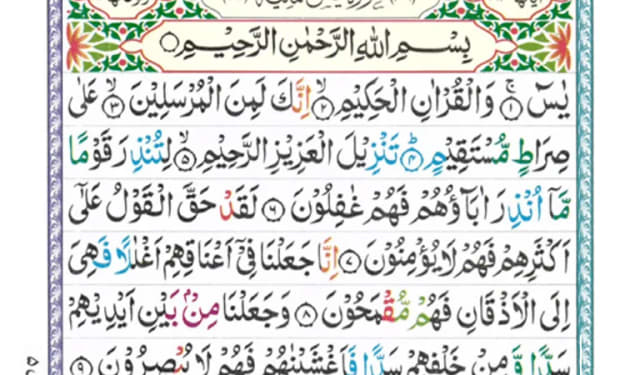 بِسْمِ اللهِ الرَّحْمٰنِ الرَّحِيْمِ ○
يٰسٓ ۚ﴿۱﴾ وَالْقُرْاٰنِ الْحَكِيْمِ ۙ﴿۲﴾ اِنَّكَ لَمِنَ الْمُرْسَلِيْنَ ۙ﴿۳﴾ عَلٰى
صِرَاطٍ مُّسْتَقِيْمٍ ؕ﴿۴﴾ تَنْزِيْلَ الْعَزِيْزِ الرَّحِيْمِ ۙ﴿۵﴾ لِتُنْذِرَ قَوْمًا
مَّاۤ اُنْذِرَ اٰبَآؤُهُمْ فَهُمْ غٰفِلُوْنَ ﴿۶﴾ لَقَدْ حَقَّ الْقَوْلُ عَلٰۤى
اَكْثَرِهِمْ فَهُمْ لَا يُؤْمِنُوْنَ ﴿۷﴾ اِنَّا جَعَلْنَا فِيْۤ اَعْنَاقِهِمْ اَغْلٰلًا فَهِىَ
اِلَى الْاَذْقَانِ فَهُمْ مُّقْمَحُوْنَ ﴿۸﴾ وَجَعَلْنَا مِنْۢ بَيْنِ اَيْدِيْهِمْ
سَدًّا وَّمِنْ خَلْفِهِمْ سَدًّا فَاَغْشَيْنٰهُمْ فَهُمْ لَا يُبْصِرُوْنَ ﴿۹﴾